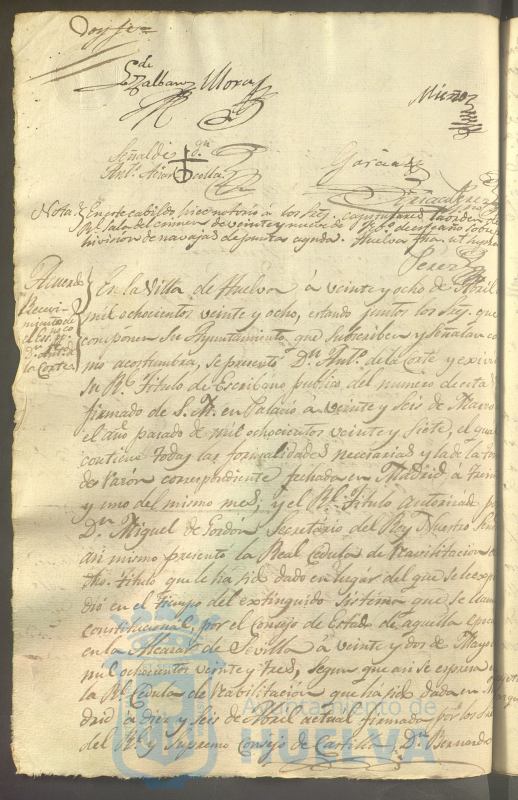 Doy fe=
de
Zalbans Mora
Mieno
Señal de + dn
Anto
Garcia
Nota En este cabildo hice notorio à los Sres. capitulares la orden de
Rl. Sala del crimen de veinte y nueve de Feb.o de este año sobre
hivision de navajas de puntas aguda. Huelva fha. ut supra
Perez
Acuerdo
Recivi-
miento de
el esno. pco
Dn. Anto. de
la Corte
En la Villa de Huelva à veinte y ocho de Abril
mil ochocientos veinte y ocho, estando juntos los Sres. que
componen su Ayuntamiento que subscriben y señalan co
mo acostumbra, se presentó Dn. Anto. de la Corte y exivio
Su Rl. Titulo de Escribano publico del numero de esta V
firmado de S. M. en Palacio à veinte y seis de Marzo
el año pasado de mil ochocientos veinte y siete, el qual
contiene todas las formalidades necesarias y la de la to
de razón correspondiente fechada en Madrid à trein
y uno del mismo mes, y el Rl. Titulo autorizado po
Dn. Miguel de Gordón Secretario del Rey Nuestro Señ
asi mismo presentó la Real Cedula de reavilitacion
dho. titulo que le ha sido dado en lugar del que se le expi
dió en el tiempo del extinguido Sistema que se llam
constitucional, por el Consejo de Estado de aquella epoca
en la Alcazar de Sevilla à veinte y dos de Mayo
mil ochocientos veinte y tres, segun que asi se expresa
la Rl. Cedula de reabilitacion que ha sido dada en Ma
drid à diez y seis de Abril actual firmada por los Sres
del Rl. y Supremo Consejo de Castilla Dn. Bernardo
Ayuntamiento de
HUELVA